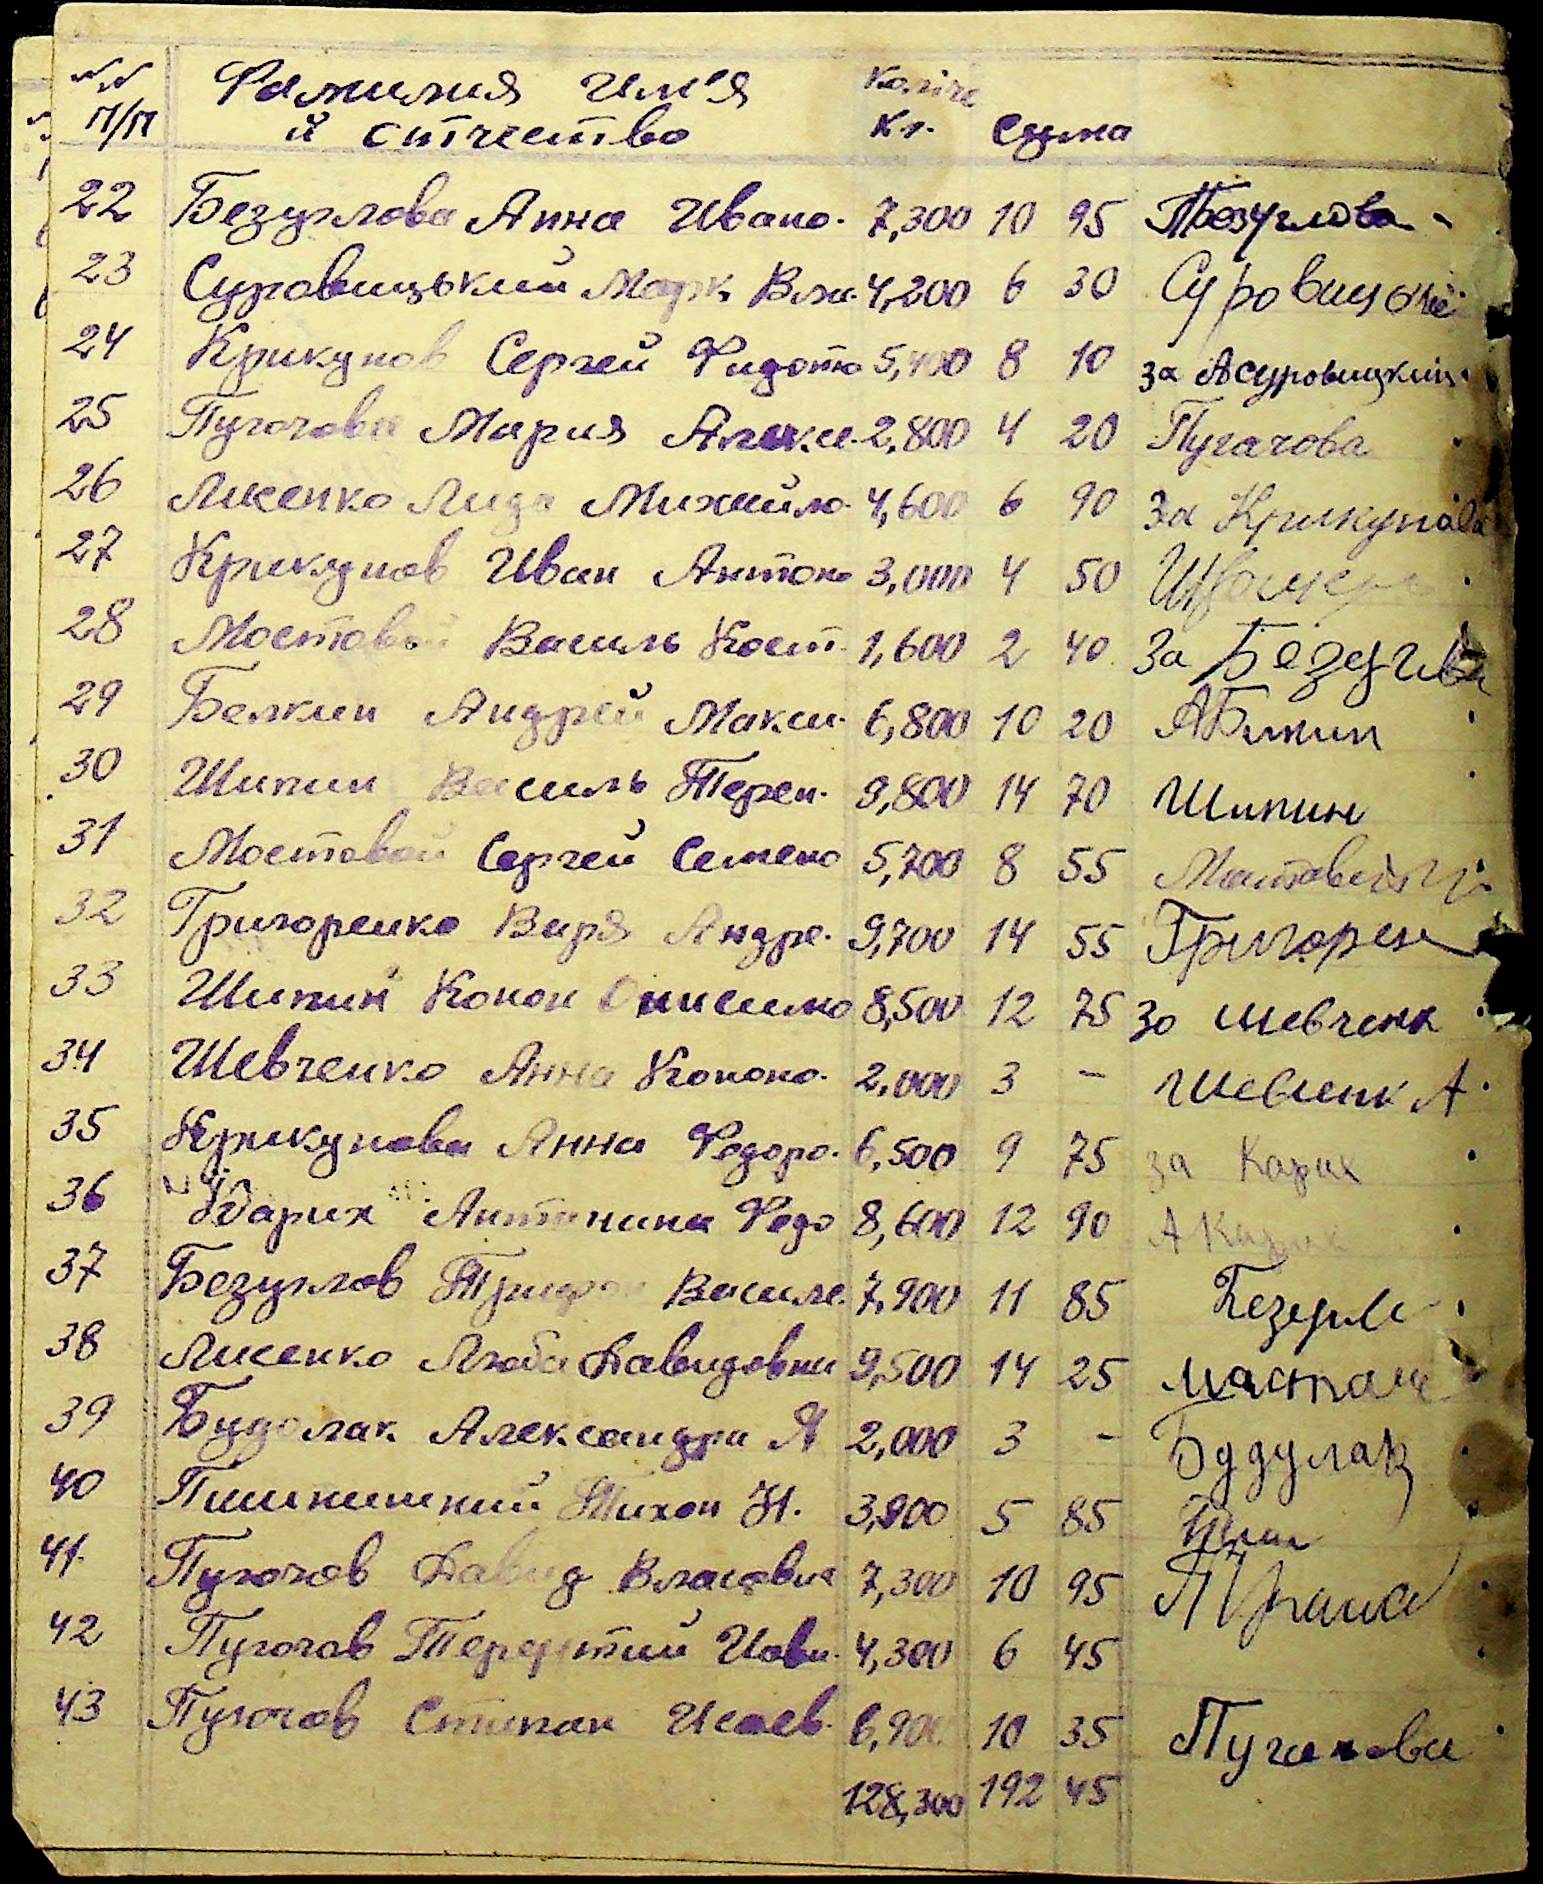 №№ Фамилия Им'я Коліче
п/п и отчество кг. Сума
22 Безуглова Анна Ивано. 7,300 10 95 Безуглова
23 Суровицький Марк Вла. 4,200 6 30 Суровицкий
24 Крикунов Сергей Фидото 5,400 8 10 за АСуровицкий
25 Пугочова Мария Алексе. 2,800 4 20 Пугачова
26 Лисенко Лида Михайло. 4,600 6 90 За Крикунова
27 Крикунов Иван Антоно 3,000 4 50
28 Мостовой Василь Кост. 1,600 2 40 За Безугл
29 Белкин Андрей Макси. 6,800 10 20
30 Шипин Василь Терен. 9,800 14 70 Шипин
31 Мостовой Сергей Семено 5,700 8 55 Мостовой
32 Григоренко Варя Андре. 9,700 14 55 Григорен
33 Шипин Конон Онисимо 8,500 12 75 За шевченк
34 Шевченко Анна Кононо. 2,000 3 – Шевченк А
35 Крикунова Анна Федоро. 6,500 9 75 за Карих
36 Карих Антонина Федо 8,600 12 90 А Карих
37 Безуглов Трифон Василе. 7,900 11 85
38 Лисенко Люба Давидовна 9,500 14 25
39 Будолак Александра Я 2,000 3 – Буддулак
40 Пишненский Тихон И. 3,900 5 85
41. Пугочов Давид Власовие 7,300 10 95
42 Пугочов Терентий Иови. 4,300 6 45
43 Пугочов Стипан Исаев. 6,900 10 35 Пугачова
128,300 192 45